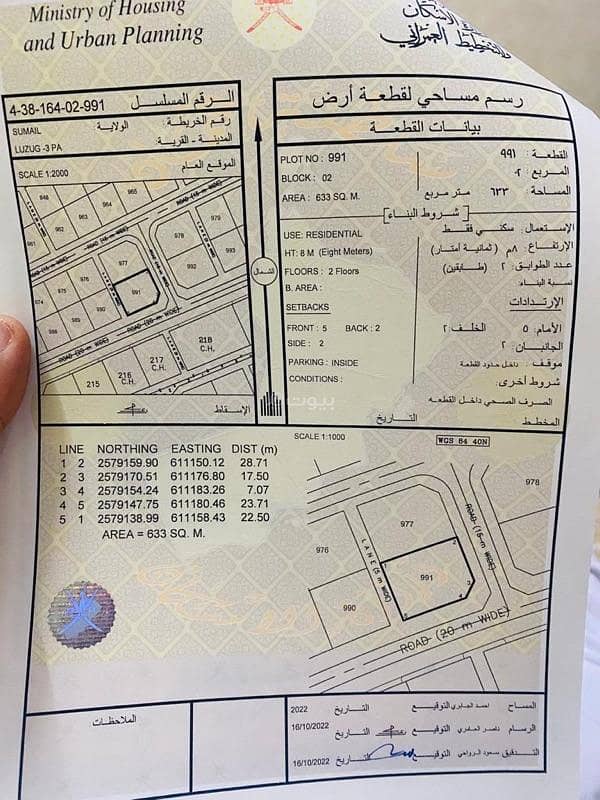 Ministry of Housing
and Urban Planning
الإسكان
والتخطيط العمراني
4-38-164-02-991 الرقم المسلسل
SUMAIL الولاية: رقم الخريطة:
LUZUG -3 PA المدينة - القرية:
SCALE 1:2000 الموقع العام
رسم مساحي لقطعة أرض
بيانات القطعة
PLOT NO : 991 القطعة ٩٩١
BLOCK : 02 المربع ٠٢
AREA : 633 SQ. M. المساحة ٦٣٣ متر مربع
شروط البناء
USE: RESIDENTIAL الإستعمال: سكني فقط
HT: 8 M (Eight Meters) الإرتفاع: ٨م (ثمانية أمتار)
FLOORS : 2 Floors عدد الطوابق ٢ (طابقين)
B. AREA : نسبة البناء:
SETBACKS الإرتدادات
FRONT : 5 BACK : 2 الأمام: ٥ الخلف ٢
SIDE : 2 الجانبان ٢
PARKING : INSIDE موقف: داخل حدود القطعة
CONDITIONS : شروط أخرى:
الصرف الصحي داخل القطعه
المخطط التاريخ
965
964
963
962
961
979
978
977
993
992
991
976
975
974
990
989
ROAD (15 m WIDE)
ROAD (20 m WIDE)
218
C.H.
217
C.H.
216
C.H.
215
الشمال
الإسقاط
بيوت
SCALE 1:1000
WGS 84 40N
LINE NORTHING EASTING DIST (m)
1 2 2579159.90 611150.12 28.71
2 3 2579170.51 611176.80 17.50
3 4 2579154.24 611183.26 7.07
4 5 2579147.75 611180.46 23.71
5 1 2579138.99 611158.43 22.50
AREA = 633 SQ. M.
978
977
976
991
990
LANE (5 m WIDE)
ROAD (15 m WIDE)
ROAD (20 m WIDE)
الملاحظات
المساح احمد الجابري التوقيع التاريخ 2022
الرسام ناصر العامري التوقيع التاريخ 16/10/2022
التدقيق سعود الرواحي التوقيع التاريخ 16/10/2022